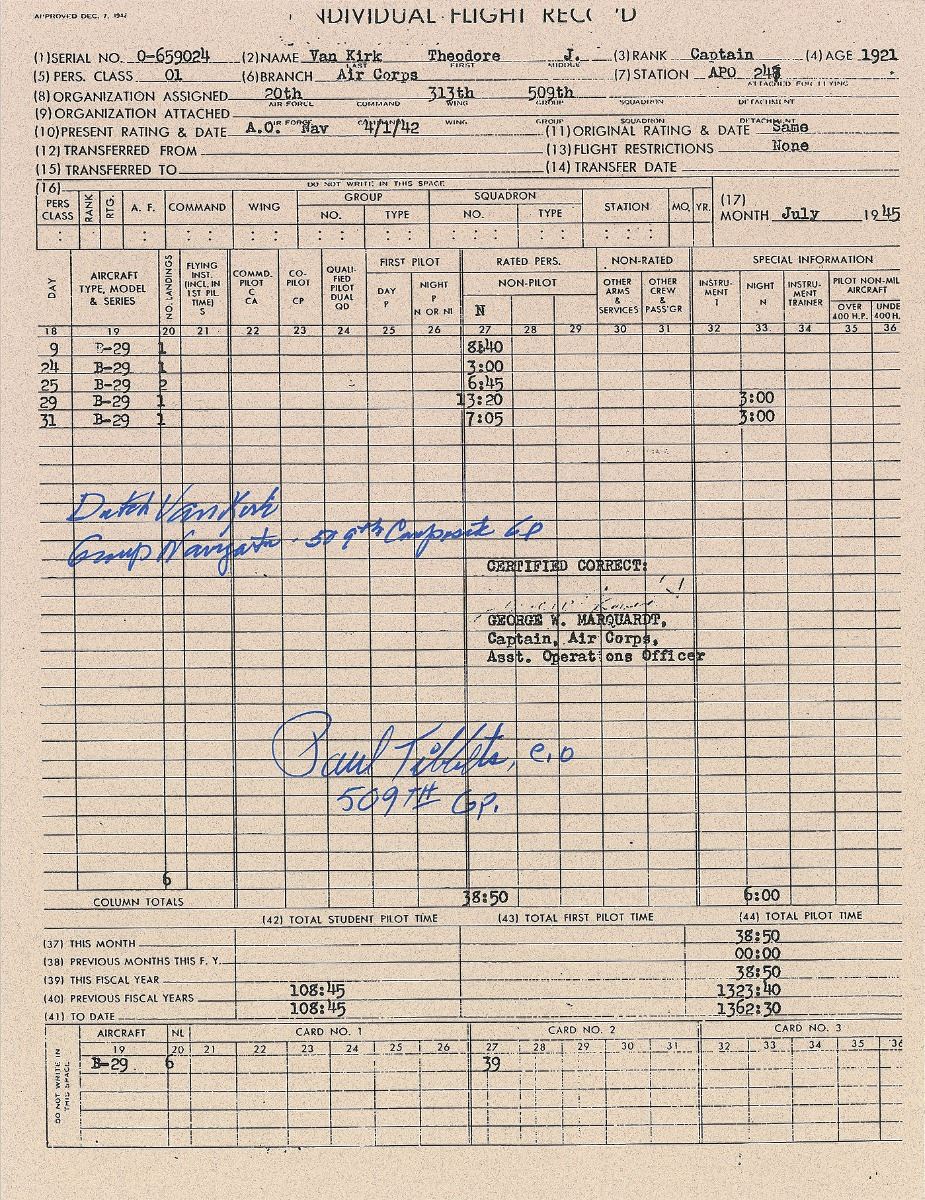 APPROVED DEC. 7, 1942
INDIVIDUAL FLIGHT RECORD
(1) SERIAL NO. O-659024 (2) NAME Van Kirk Theodore J. (3) RANK Captain (4) AGE 1921
LAST FIRST MIDDLE
(5) PERS. CLASS 01 (6) BRANCH Air Corps (7) STATION APO 247
(8) ORGANIZATION ASSIGNED 20th 313th 509th
ATTACHED FOR FLYING
AIR FORCE COMMAND WING GROUP SQUADRON DETACHMENT
(9) ORGANIZATION ATTACHED
AIR FORCE COMMAND WING GROUP SQUADRON DETACHMENT
(10) PRESENT RATING & DATE A.O. Nav 4/1/42 (11) ORIGINAL RATING & DATE Same
(12) TRANSFERRED FROM (13) FLIGHT RESTRICTIONS None
(15) TRANSFERRED TO (14) TRANSFER DATE
(16) DO NOT WRITE IN THIS SPACE
PERS CLASS RANK RTG. A. F. COMMAND WING GROUP NO. TYPE SQUADRON NO. TYPE STATION MO. YR. (17) MONTH July 1945
DAY AIRCRAFT TYPE, MODEL & SERIES NO. LANDINGS FLYING INST. (INCL. IN 1ST PIL. TIME) S COMMD. PILOT C CA CO-PILOT CP QUALI-FIED PILOT DUAL QD FIRST PILOT DAY P NIGHT P N OR NI RATED PERS. NON-PILOT N NON-RATED OTHER ARMS & SERVICES OTHER CREW & PASS'GR SPECIAL INFORMATION INSTRU-MENT I NIGHT N INSTRU-MENT TRAINER PILOT NON-MIL AIRCRAFT OVER 400 H.P. UNDE 400 H.
18 19 20 21 22 23 24 25 26 27 28 29 30 31 32 33 34 35 36
9 B-29 1 8:40
24 B-29 1 3:00
25 B-29 2 6:45
29 B-29 1 13:20 3:00
31 B-29 1 7:05 3:00
Dutch VanKirk
Group Navigator - 509th Composite GP
CERTIFIED CORRECT:
GEORGE W. MARQUARDT,
Captain, Air Corps,
Asst. Operations Officer
Paul Tibbets, C.O
509TH GP.
6
COLUMN TOTALS 38:50 6:00
(42) TOTAL STUDENT PILOT TIME (43) TOTAL FIRST PILOT TIME (44) TOTAL PILOT TIME
(37) THIS MONTH 38:50
(38) PREVIOUS MONTHS THIS F. Y. 00:00
(39) THIS FISCAL YEAR 38:50
(40) PREVIOUS FISCAL YEARS 108:45 1323:40
(41) TO DATE 108:45 1362:30
AIRCRAFT NL CARD NO. 1 CARD NO. 2 CARD NO. 3
19 20 21 22 23 24 25 26 27 28 29 30 31 32 33 34 35 36
B-29 6 39
DO NOT WRITE IN THIS SPACE